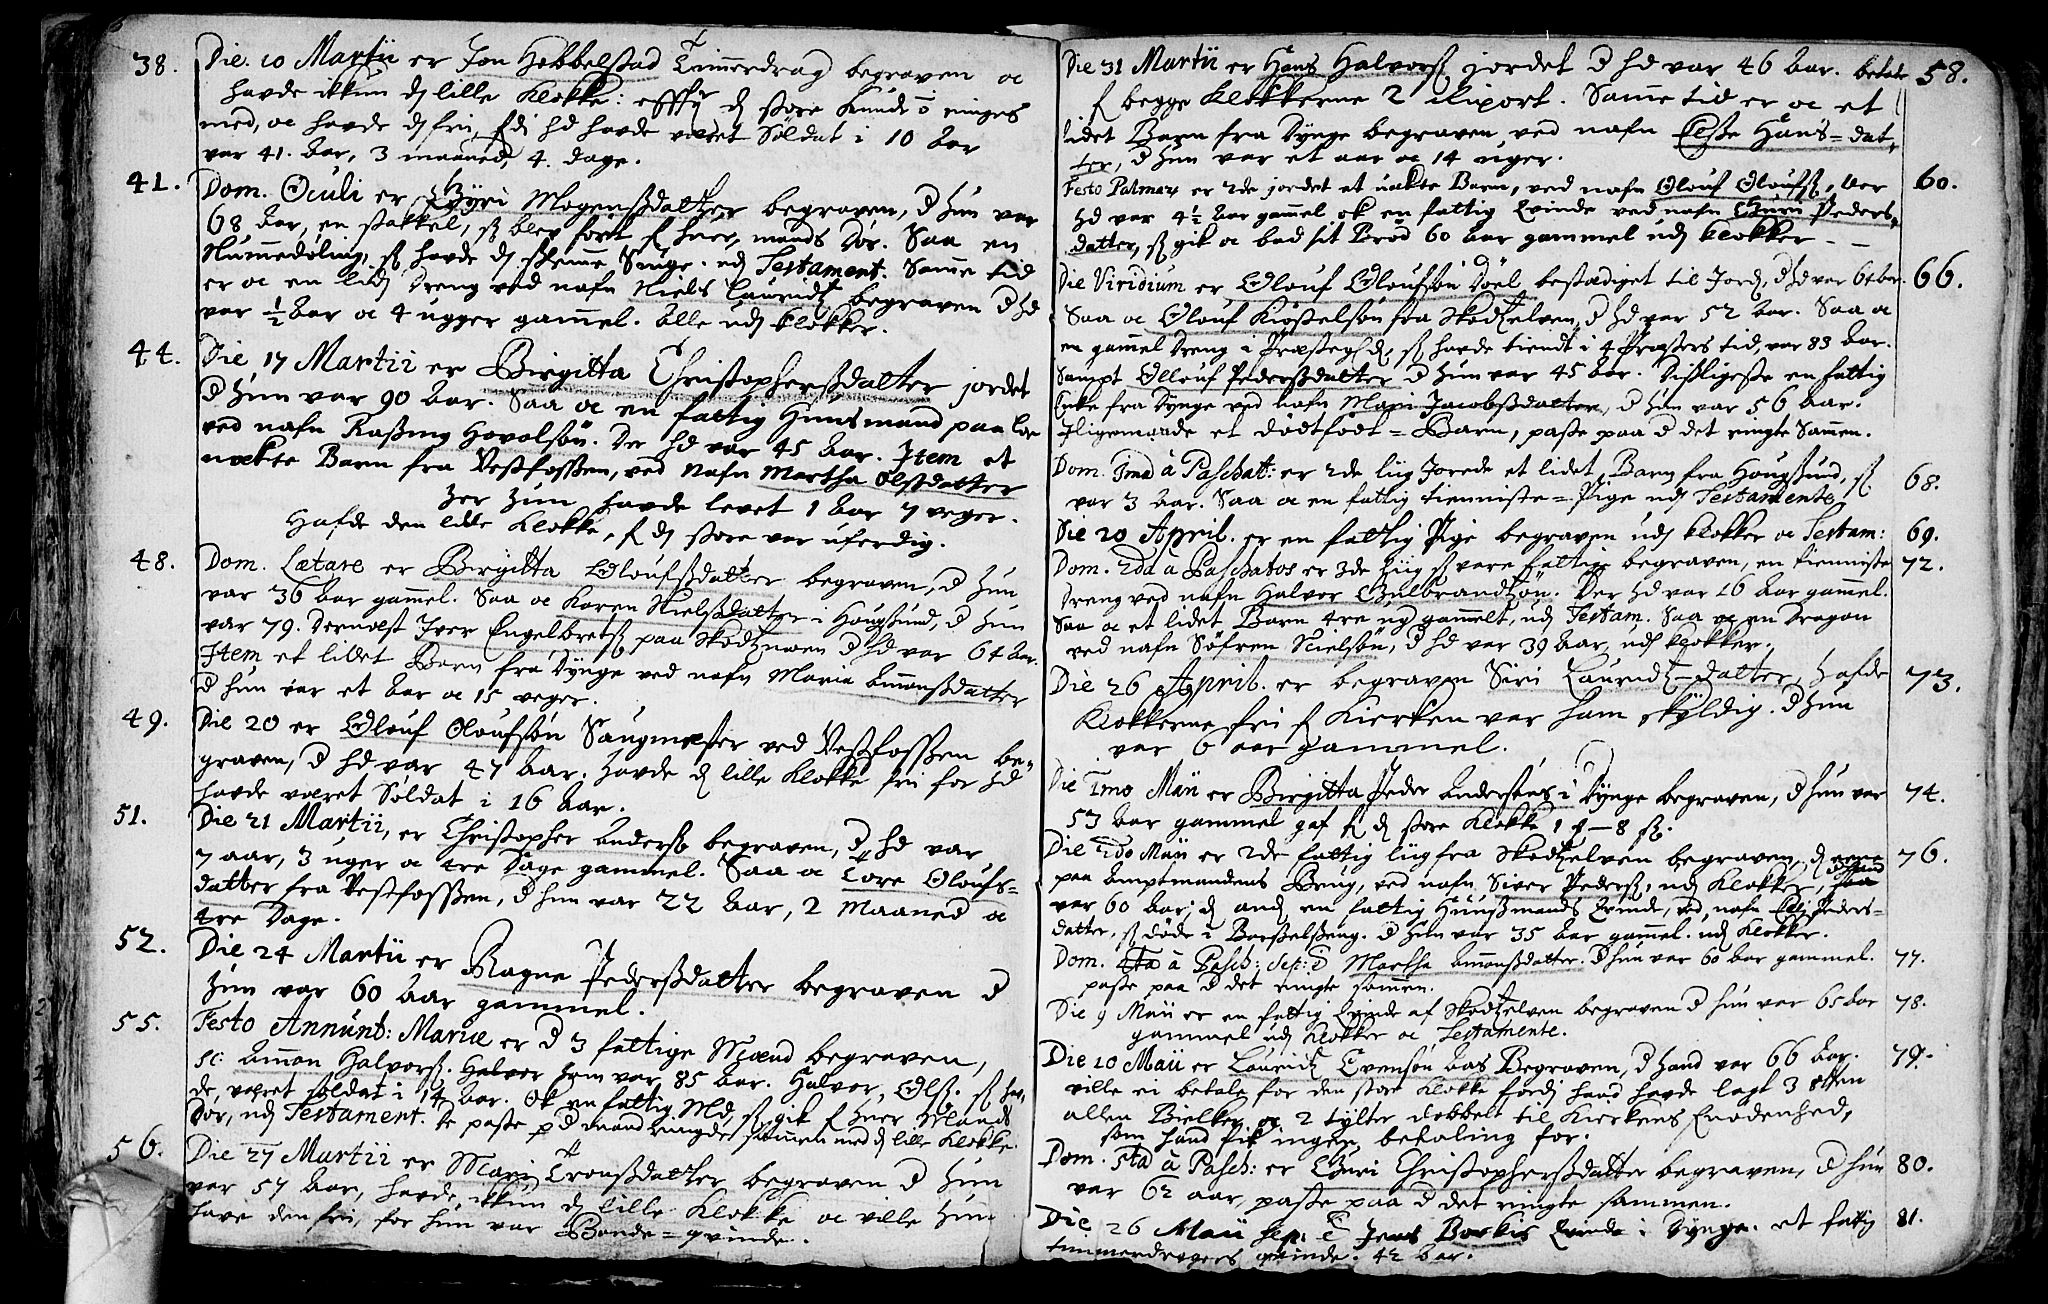 38. Die. 10 Martii er Jon Hobbelstad Timmerdrag begraven oc
havde ikkun dj lille Klokke: efftr dj store kunde ei ringes
med, oc havde dj fri, fdi hd havde været Soldat i 10 Aar
var 41. Aar, 3 maaned 4. dage.
41. Dom. Oculi er Gyri Mogensdatter begraven, d hun var
68 Aar, en stakkel, blev ført f hver mands dør. Saa en
Nummedøling, havde dj slemme Siuge. udj Testament. Samme tid
er oc en lidj dreng ved nafn Niels Lauridtz begraven d hd
var ½ Aar oc 4 ugger gammel. Alle udj klokker.
44. Die 17 Martii er Birgitta Christophersdatter jordet
d hun var 90 Aar. Saa oc en fattig Huusmand paa
ved nafn Rasmg Hovolsøn. Der hd var 45 Aar. Item et
nøkte Barn fra Vestfossen, ved Nafn Martha Olsdatter
hun havde levet 1 Aar 7 veger.
Hafde den lille Klokke, f dj store var uferdig.
48. Dom. Lætare er Birgitta Oloufsdatter begraven, d hun
var 36 Aar gammel. Saa oc Karen Nielsdatter i Hougsund, d hun
var 79. Dernæst Iver Engelbrets paa Skotzmoen d hd var 64 Aar.
Item et lidet Barn fra Dynge ved nafn Maria Amonsdatter
d hun var et Aar oc 15 veger.
49. Die 20 er Olouf Oloufsøn Saugmester ved Vestfossen be-
graven, d hd var 47 Aar. havde dj lille Klokke fri for hd
havde været Soldat i 16 Aar.
51. Die 21 Martii, er Christopher Anders begraven, d hd var
7 aar, 3 uger oc tre Dage gammel. Saa oc Tore Oloufs-
datter fra Vestfossen, d hun var 22 Aar, 2 Maaned oc
tre Dage.
52. Die 24 Martii er Ragne Pedersdatter begraven d
hun var 60 Aar gammel.
55. Festo Annunt: Mariæ er d 3 fattige Mænd begraven,
sc: Amon Halvors. Halvor hvm var 85 Aar. Halvor, Ols. hav-
de, været soldat i 14 Aar. Ok en fattig Md, gik f hver Mands
Dør, udj Testament. De paste d mand ringde sammen med dj lille Klokke
56. Die 27 Martii er Mari Tronsdatter begraven d hun
var 57 Aar, havde ikkun dj lille Klokke oc ville hun
have den fri, for hun var Bonde=qvinde.
Die 31 Martii er Hans Halvors jordet d hd var 46 Aar. betalt 58.
f begge Klokkerne 2 Rixort. Samme tid er oc et
lidet Barn fra Dynge begraven ved nafn Elsse Hans=dat-
ter, d hun var et aar oc 14 uger.
Festo Palmar er 2de jordet et nøkte Barn, ved nafn Olouf Oloufs, der 60.
hd var 4½ Aar gammel ok en fattig Qvinde ved nafn Guri Peders-
datter, gik oc bad sit Brød 60 Aar gammel udj klokker
Die Viridium er Olouf Oloufsøn Døel bestædiget til Jord, d hd var 64 Aar. 66.
Saa oc Olouf Kiøstelsøn fra Skotzelven d hd var 52 Aar. Saa oc
en gammel dreng i Præstegd, havde tiendt i 4 Præsters tid, var 83 Aar.
Sampt Ollouf Pedersdatter d hun var 45 Aar. Disligeste en fattig
Enke fra Dynge ved nafn Mari Jacobsdatter, d hun var 56 Aar.
Iligemaade et dødtfødt=Barn, paste paa d det ringte Sammen.
Dom. Ima à Paschat: er 2de liig Jorede et lidet Barn fra Hougsund, 68.
var 3 Aar. Saa oc en fattig tienniste=Pige udj Testamente
Die 20 April. er en fattig Pige begraven udj klokker oc Testam: 69.
Dom. 2da à Paschatos er 3de liig vare fattige begraven, en tienniste 72.
dreng ved nafn Halvor Gulbrandtsøn. Der hd var 16 Aar gammel.
Saa oc et lidet Barn 4re ug gammelt, udj Testam. Saa oc en Dragon
ved nafn Søfren Nielsøn, d hd var 39 Aar, udj klokker.
Die 26 April. er begraven Siri Lauridtz-datter, hafde 73.
Klokkerne fri f Kierken var ham skyldig. d hun
var 6 aar gammel.
Die Imo Maii er Birgitta Peder Andersens i Dynge begraven, d hun var 74.
53 Aar gammel gaf f dj store Klokke 1 - 8
Die 2do Maii er 2de fattig liig fra Skotzelven begraven, dj 76.
paa Amptmandens Brug, ved nafn Siver Peders, udj Klokker,
var 60 Aar; dj andj en fattig Huusmands Qvinde, ved nafn Peders-
datter, døde i Barselseng. d hun var 35 Aar gammel. udj Klokker.
Dom. 4ta à Pasch: Sep: d Martha Amonsdatter. d hun var 60 Aar gammel. 77.
paste paa d det ringte samen.
Die 9 Maii er en fattig Qvinde af Skotzelven begraven d hun var 65 Aar 78.
gammel udj Klokker oc Testamente.
Die 10 Maii er Lauridtz Evensøn Aas Begraven, d hand var 66 Aar. 79.
ville ei betale for den store Klokke fordj hand havde lagt 3 otten
allen Bielker oc 2 tylter dobbelt til Kierkens Enødenhed,
som hand fik ingen betaling for.
Dom. 5ta à Pasch: er Guri Christophersdatter begraven, d hun 80.
var 62 aar, paste paa d det ringte sammen.
Die 26 Maii sep: e Jens Borkis Qvinde i Dynge. et fattig 81.
timmerdragers qvinde. 42 Aar.